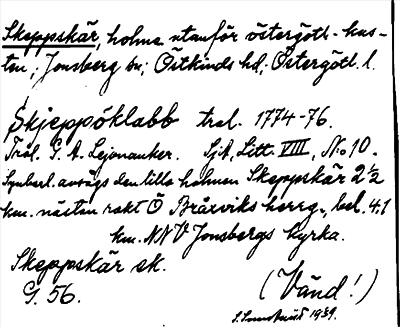 Skeppskär, holme utanför östergötl-kus-
ten; Jonsberg sn; Östkinds hd, Östergötl. l.
Skjeppöklabb trol. 1774-76.
Tröl. G. A. Lejonanker. SjA, Litt. VIII, No 10.
Synberl. avsågs den lilla holmen Skeppskär 2 1/2
km. nästan rakt Ö Bråxviks herrg., bel. 4,1
km. NNV Jonsbergs kyrka.
Skeppskär ek.
G. 56. (Vänd!)
1939.